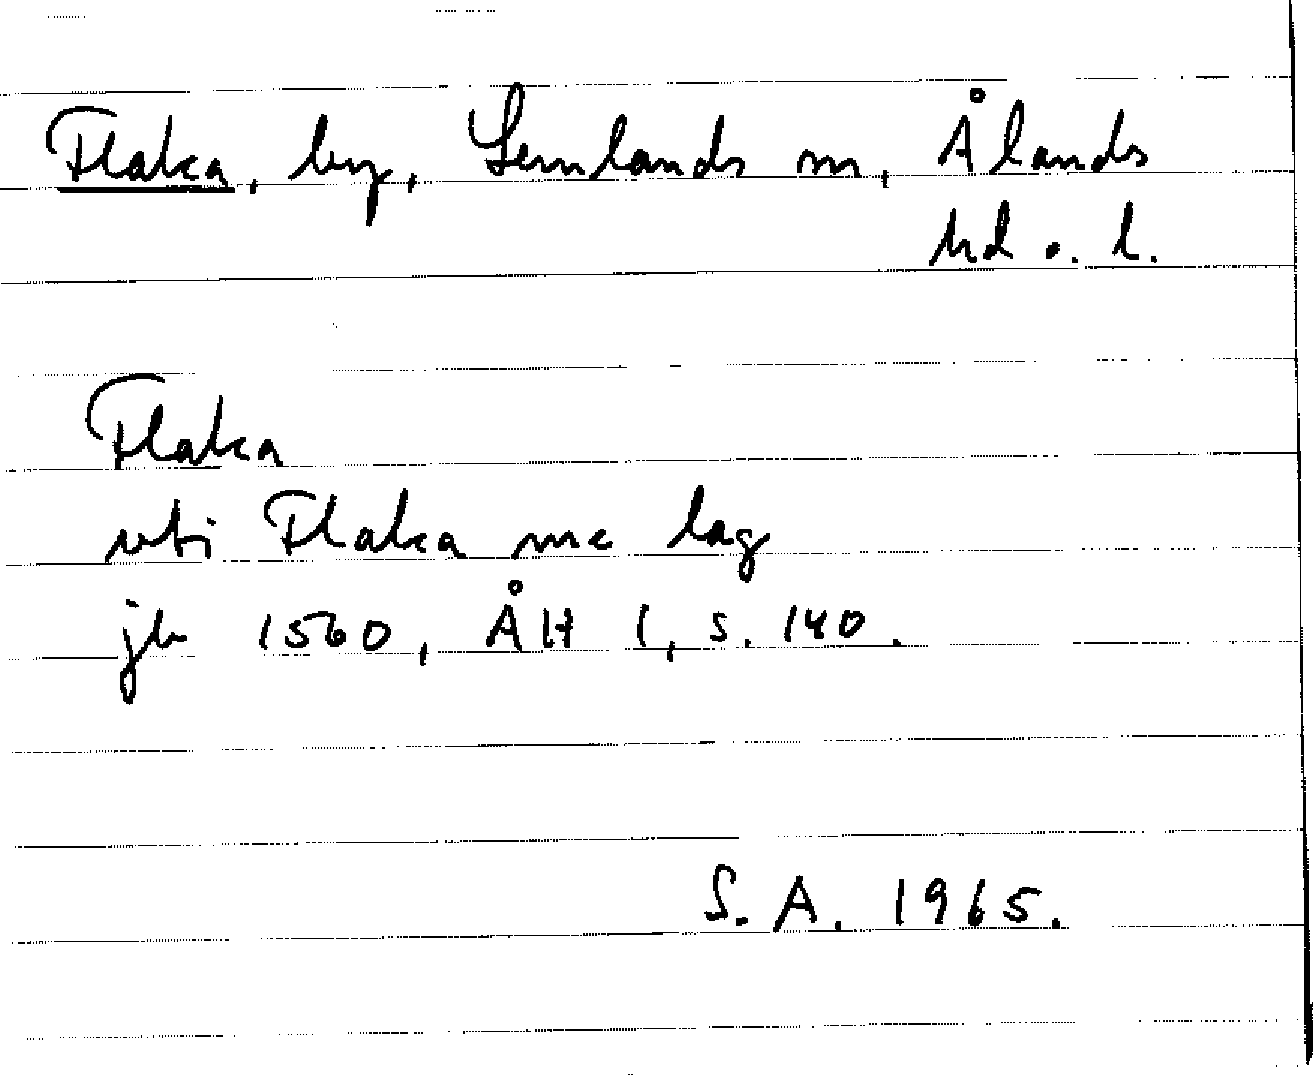 Flaka, by, Lemlands sn, Ålands
hd o. l.
Flaka
vti Flaka me lag
jb 1560, ÅH 1, s. 140.
S. A. 1965.